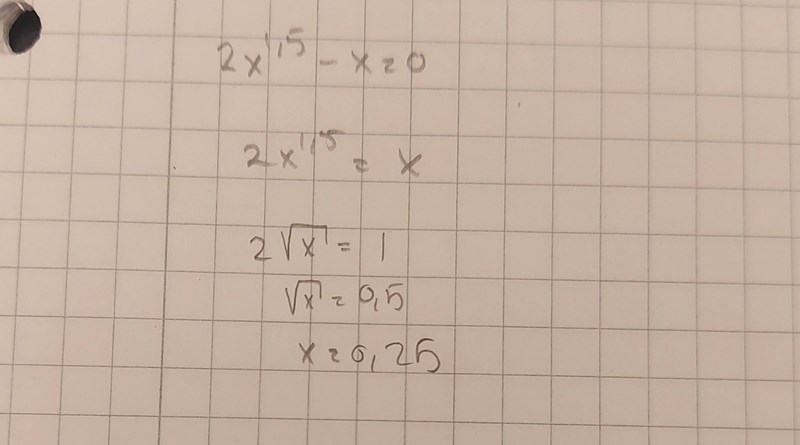 2x^1,5 - x = 0
2x^1,5 = x
2√x = 1
√x = 0,5
x = 0,25